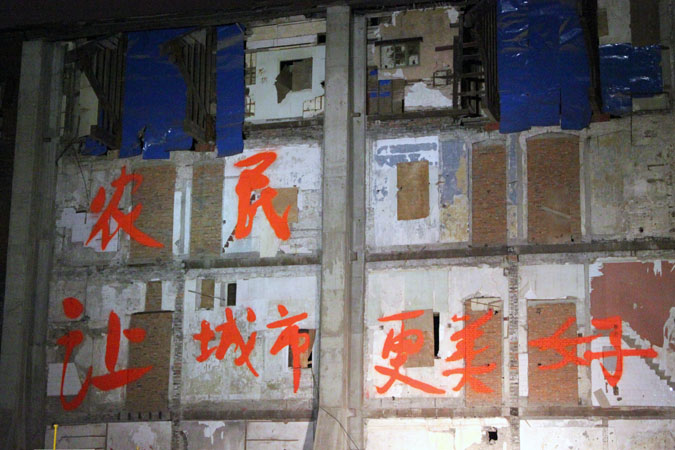 农民
让城市更美好